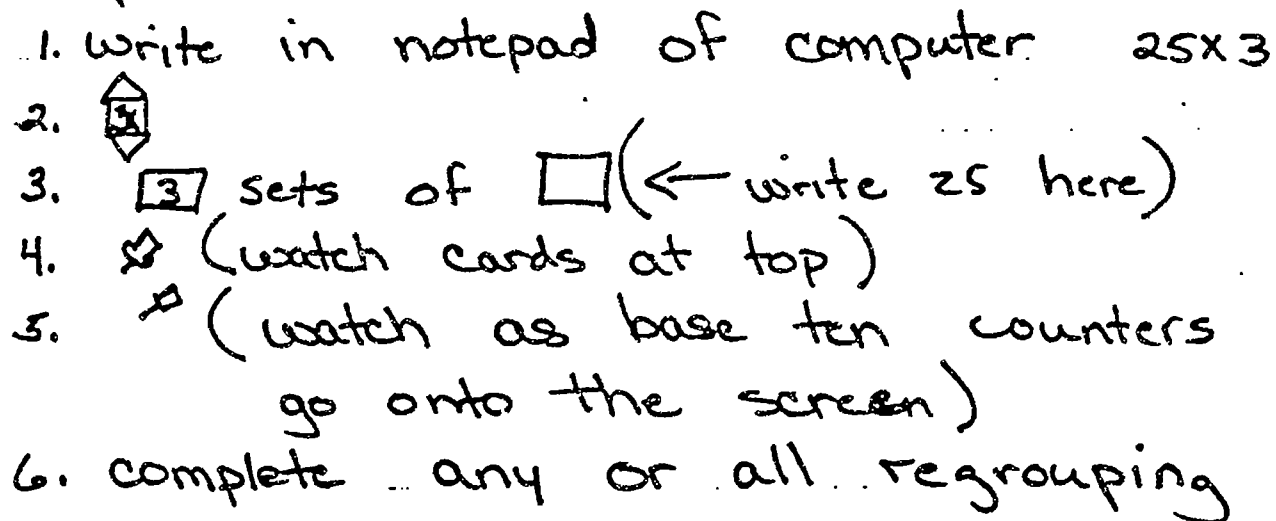 1. write in notepad of computer 25x3
2.
3. 3 sets of (← write 25 here)
4. (watch cards at top)
5. (watch as base ten counters
go onto the screen)
6. complete any or all regrouping